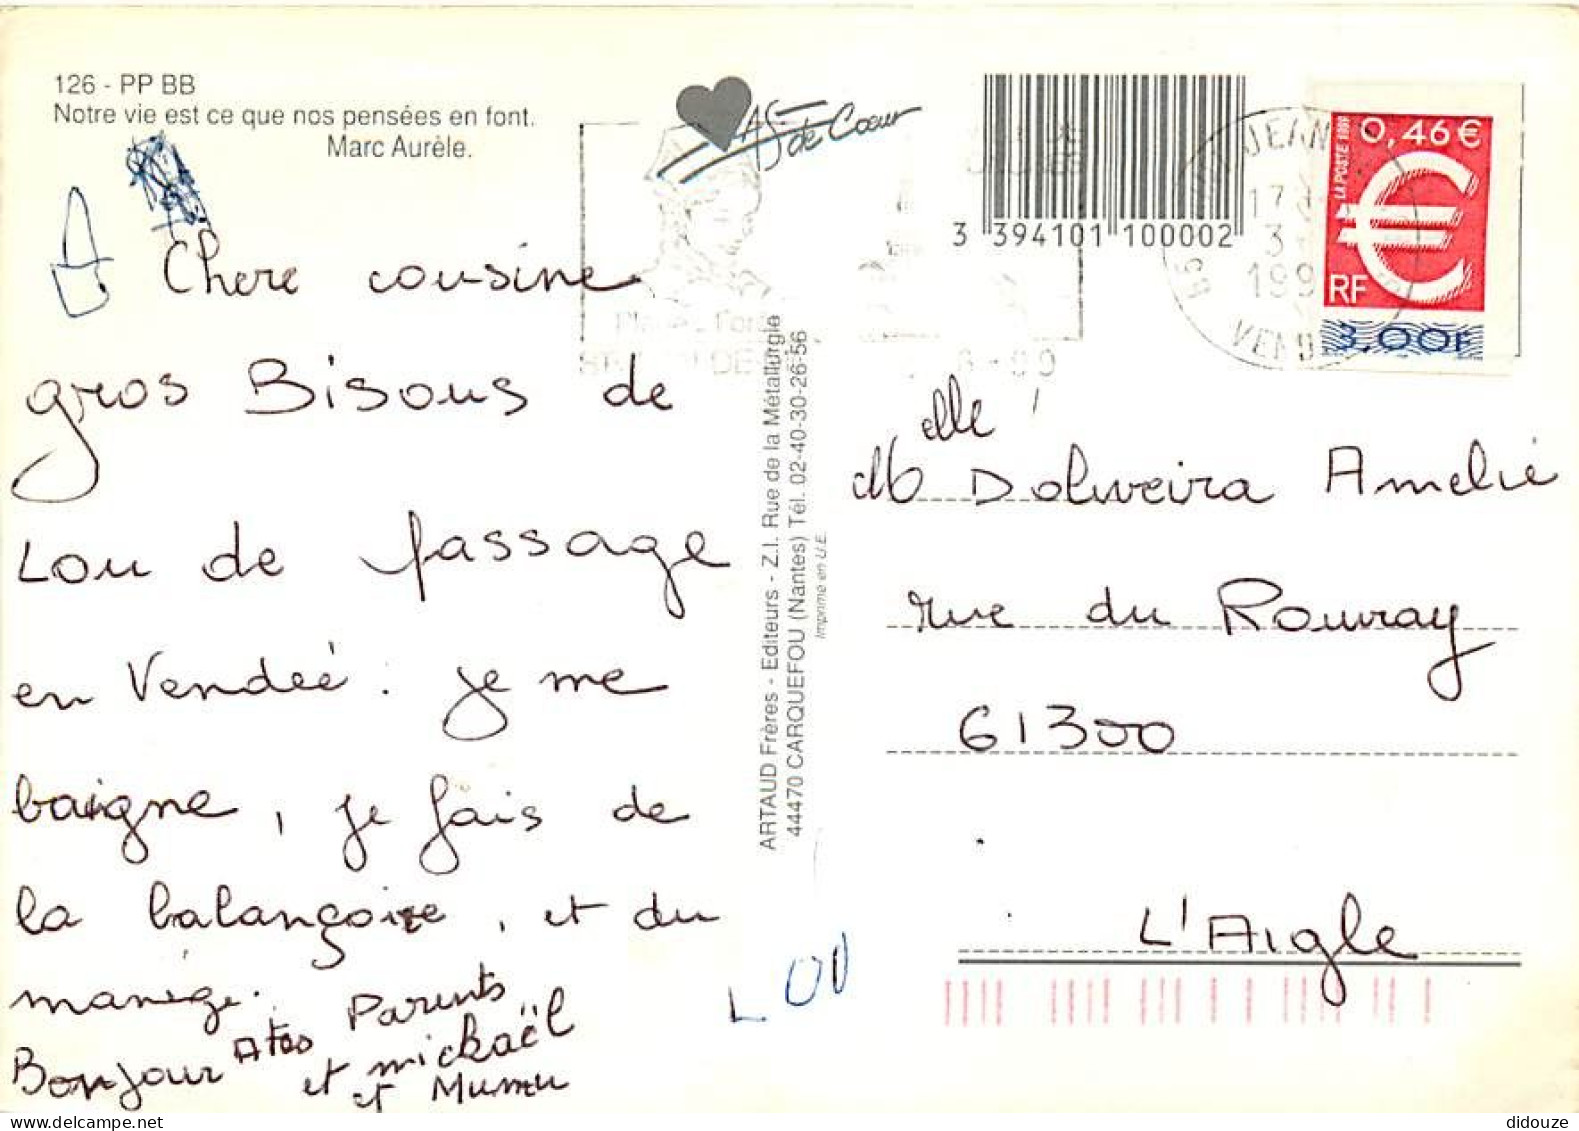 126 - PP BB
Notre vie est ce que nos pensées en font.
Marc Aurèle.
AS de Cœur
3 394101 100002
0,46 €
LA POSTE 1999
RF
3,00F
JEAN
17
3
199
VEND
Chere cousine
gros Bisous de
Lou de passage
en Vendeé : je me
baigne, je fais de
la balançoire, et du
manège.
Bonjour A tes Parents
et mickaël
et Mumu
LOU
ARTAUD Frères - Editeurs - Z.I. Rue de la Métallurgie
44470 CARQUEFOU (Nantes) Tél. 02-40-30-26-56
Imprimé en U.E.
Melle Doliveira Amelie
rue du Rouvray
61300
L'Aigle
didouze